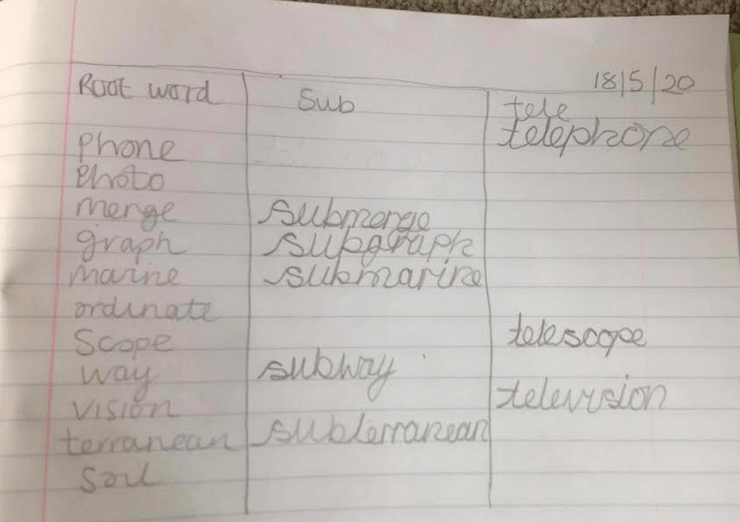 18/5/20
Root word Sub tele
Phone telephone
Photo
merge submerge
graph subgraph
marine submarine
ordinate
Scope telescope
way subway
vision television
terranean subterranean
Soil